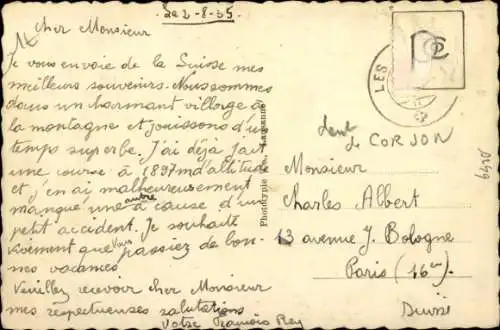 Le 2-8-35
Cher Monsieur
Je vous envoie de la Suisse mes
meilleurs souvenirs. Nous sommes
dans un charmant village à
la montagne et jouissons d'un
temps superbe. J'ai déjà fait
une course à 1897m d'altitude
et j'en ai malheureusement
manqué une autre à cause d'un
petit accident. Je souhaite
vivement que vous passiez de bon-
nes vacances.
Veuillez recevoir cher Monsieur
mes respectueuses salutations
Votre François Rey
Phototypie Co., Lausanne
LES
Dent de CORJON
Monsieur
Charles Albert
13 avenue J. Bologne
Paris (16em)